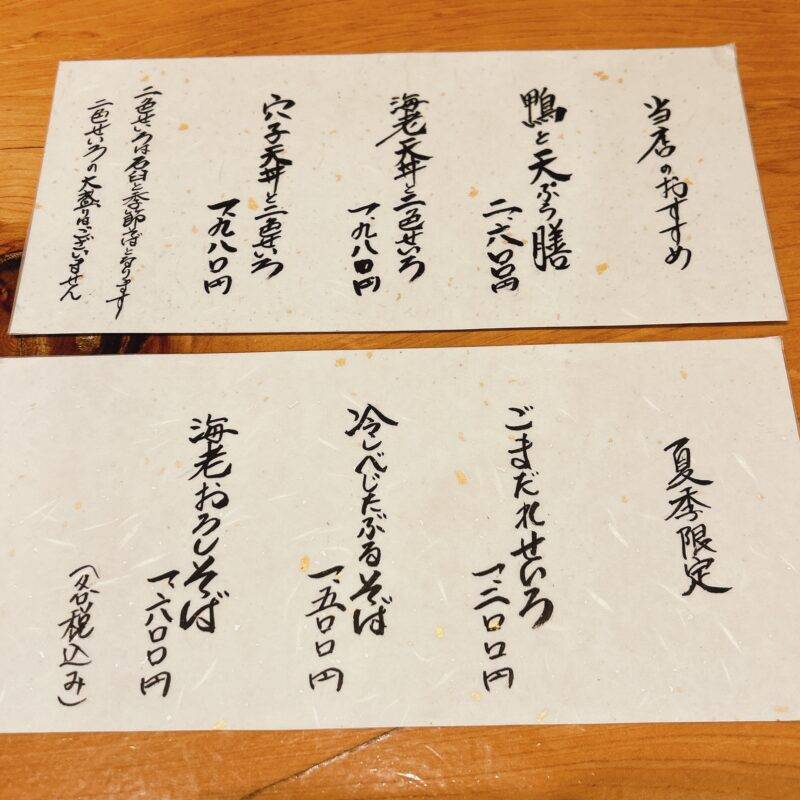 当店のおすすめ
鴨と天ぷら膳
二、六〇〇円
海老天丼と二色せいろ
一、九八〇円
穴子天丼と二色せいろ
一、九八〇円
二色せいろは石臼と季節そばとなります
二色せいろの大盛りはございません
夏季限定
ごまだれせいろ
一、二〇〇円
冷しべじたぶるそば
一、五〇〇円
海老おろしそば
一、六八〇〇円
（各税込み）